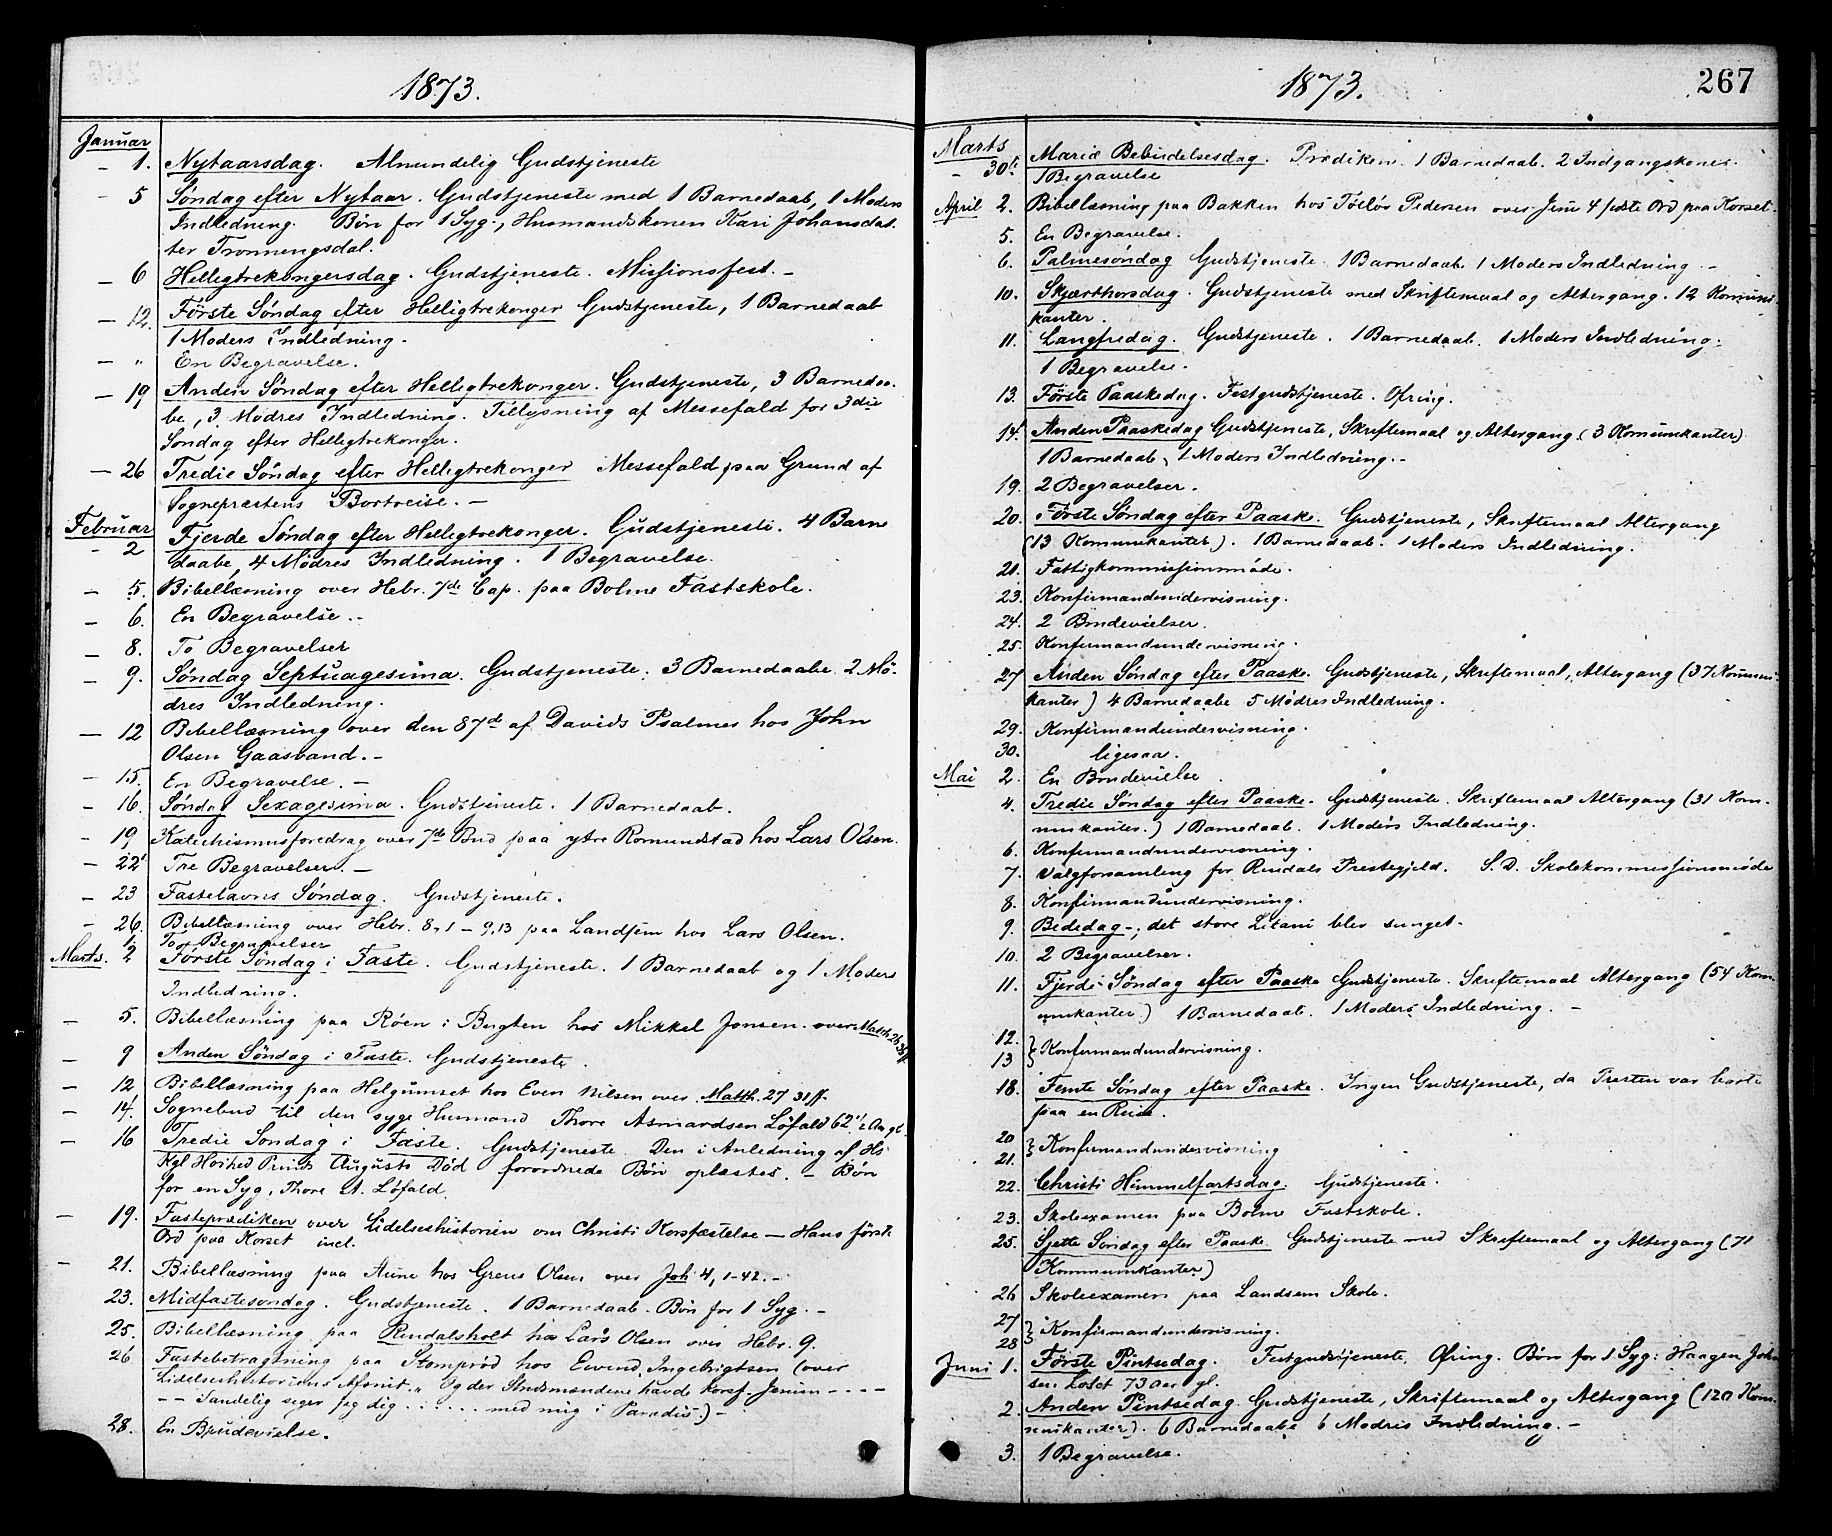 1873.
Januar
- 1. Nytaarsdag. Almindelig Gudstjeneste
- 5 Søndag efter Nytaar. Gudstjeneste med 1 Barnedaab, 1 Moders
Indledning. Bøn for 1 Syg, Husmandskonen Kari Johansdat-
ter Tronnengsdal.
- 6 Helligtrekongersdag. Gudstjeneste. Missionsfest. -
- 12. Förste Søndag efter Helligtrekonger Gudstjeneste, 1 Barnedaab
1 Moders Indledning.
- " En Begravelse.
- 19 Anden Søndag efter Helligtrekonger. Gudstjeneste, 3 Barnedaa-
be, 3 Mødres Indledning. Tillysning af Messefald for 3die
Søndag efter Helligtrekonger.
- 26 Tredie Søndag efter Helligtrekonger Messefald paa Grund af
Sognepræstens Bortreise. -
Februar
- 2 Fjerde Søndag efter Helligtrekonger. Gudstjeneste. 4 Barne
daabe, 4 Mødres Indledning. 1 Begravelse.
- 5. Bibellæsning over Hebr. 7de Cap. paa Bolme Fastskole.
- 6. En Begravelse. -
- 8. To Begravelser
- 9. Søndag Septuagesima. Gudstjeneste. 3 Barnedaabe. 2 Mö-
dres Indledning.
- 12 Bibellæsning over den 87de af Davids Psalmer hos John
Olsen Gaasvand. -
- 15. En Begravelse. -
- 16. Søndag Sexagesima. Gudstjeneste. 1 Barnedaab.
- 19 Katechismusforedrag over 7de Bud paa ytre Romundstad hos Lars Olsen.
- 22 Tre Begravelser. -
- 23 Fastelavns Søndag. Gudstjeneste.
- 26. Bibellæsning over Hebr. 8,1 - 9,13 paa Landsem hos Lars Olsen.
1. To Begravelser
Marts. 2 Förste Søndag i Faste. Gudstjeneste. 1 Barnedaab og 1 Moders
Indledning.
- 5. Bibellæsning paa Röen i Bugten hos Mikkel Jonsen. over Matth. 26
- 9 Anden Søndag i Faste. Gudstjeneste.
- 12 Bibellæsning paa Helgumset hos Even Nilsen over Matth. 27 31ff.
- 14. Sognebud til den syge Husmand Thore Asmardsen Löfald 62 1/2 Aar gl.
- 16 Tredie Søndag i Faste. Gudstjeneste. Den i Anledning af Hs
Kgl Hoihed Prinds Augusts Död forordnede Bön oplæstes. - Bön
for en Syg, Thore A. Löfald.
- 19. Fasteprædiken over Lidelseshistorien om Christi Korsfæstelse - Hans förste
Ord paa Korset incl.
- 21. Bibellæsning paa Aune hos Greus Olsen over Joh 4, 1-42. -
23. Midfastesøndag. Gudstjeneste. 1 Barnedaab. Bön for 1 Syg. -
25. Bibellæsning paa Rindalsholt hos Lars Olsen over Hebr. 9.
26 Fastebetragtning paa Stomprød hos Eivind Ingebrigtsen (over
Lidelseshistoriens Afsnit. " Og der Stridsmændene havde korsf. Jesum - - - -
- - Sandelig siger jeg dig . . . . . med mig i Paradis.) -
28. En Brudevielse.
1873.
267
Marts
- 30te Mariæ Bebudelsesdag. Prædiken. 1 Barnedaab. 2 Indgangskoner.
1 Begravelse
April 2. Bibellæsning paa Bakken hos Pedersen over Jesu 4 sidste Ord paa Korset.
5. En Begravelse.
6. Palmesøndag Gudstjeneste. 1 Barnedaab. 1 Moders Indledning. -
10. Skjærthorsdag. Gudstjeneste med Skriftemaal og Altergang. 12 Komuni-
kanter.
11. Langfredag. Gudstjeneste. 1 Barnedaab. 1 Moders Indledning.
1 Begravelse.
13. Förste Paaskedag. Festgudstjeneste. Ofring.
14. Anden Paaskedag Gudstjeneste, Skriftemaal og Altergang (3 Komunikanter)
1 Barnedaab, 1 Moders Indledning. -
19. 2 Begravelser.
20. Förste Søndag efter Paaske. Gudstjeneste, Skriftemaal Altergang
(13 Komunikanter). 1 Barnedaab. 1 Moders Indledning.
21. Fattigkommissionsmöde.
23. Konfirmandundervisning.
24. 2 Brudevielser.
25. Konfirmandundervisning.
27 Anden Søndag efter Paaske. Gudstjeneste, Skriftemaal, Altergang (37 Kommuni-
kanter) 4 Barnedaabe 5 Mödres Indledning.
29. Konfirmandundervisning.
30. ligesaa.
Mai 2. En Brudevielse.
4. Tredie Søndag efter Paaske. Gudstjeneste. Skriftemaal Altergang (31 Kom-
munikanter.) 1 Barnedaab. 1 Moders Indledning.
6. Konfirmandundervisning.
7. Valgforsamling for Rindals Prestegjeld. S. D. Skolekommissionsmöde
8. Konfirmandundervisning.
9. Bededag -, det store Litani blev sunget.
10. 2 Begravelser.
11. Fjerde Søndag efter Paaske Gudstjeneste. Skriftemaal Altergang (54 Kom-
munikanter) 1 Barnedaab. 1 Moders Indledning. -
12.
13 } Konfirmandundervisning.
18. Femte Søndag efter Paaske. Ingen Gudstjeneste, da Presten var borte
paa en Reise.
20
21. } Konfirmandundervisning
22. Christi Himmelfartsdag. Gudstjeneste.
23. Skoleexamen paa Bolme Fastskole.
25. Sjette Søndag efter Paaske. Gudstjeneste med Skriftemaal og Altergang (71
Kommunikanter)
26 Skoleexamen paa Landsem Skole.
27
28 } Konfirmandundervisning.
Juni 1. Förste Pintsedag. Festgudstjeneste, Ofring. Bön for 1 Syg: Haagen John
sen 73 Aar gl.
2. Anden Pintsedag. Gudstjeneste, Skriftemaal og Altergang (120 Kom-
munikanter). 6 Barnedaabe 6 Mödres Indledning. -
3. 1 Begravelse.